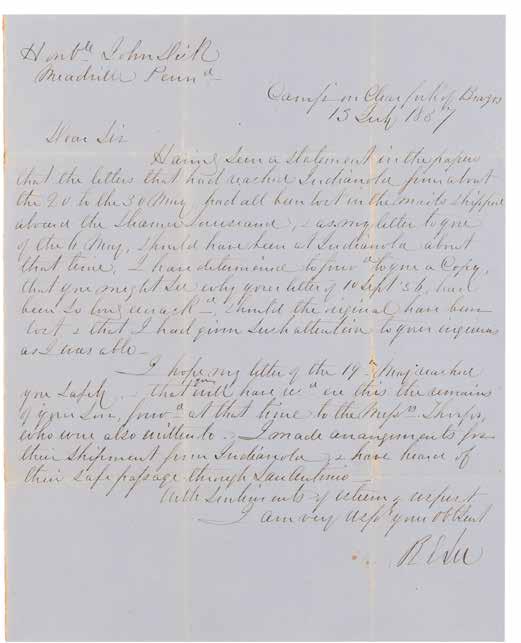 Honble John Dick
Meadville Penna
Camp on Clear fork of Brazos
13 July 1857
Dear Sir
Having seen a statement in the papers
that the letters that had reached Indianola from about
the 20 to the 30 May had all been lost in the mails shipped
aboard the Steamer Louisiana, & as my letter to you
of the 11 May, should have been at Indianola about
that time, I have determined to forwd to you a Copy,
that you might see why your letter of 10 Sept 56, had
been so long unackd, should the original have been
lost & that I had given such attention to your
as I was able—
I hope my letter of the 19 May reached
you safely & that you will have recd ere this the remains
of your Son, forwd at that time to the Messrs
who were also written to. I made arrangements for
their shipment from Indianola & have heard of
their safe passage through San Antonio—
With sentiments of esteem & respect
I am very respy your obt Servt
R E Lee